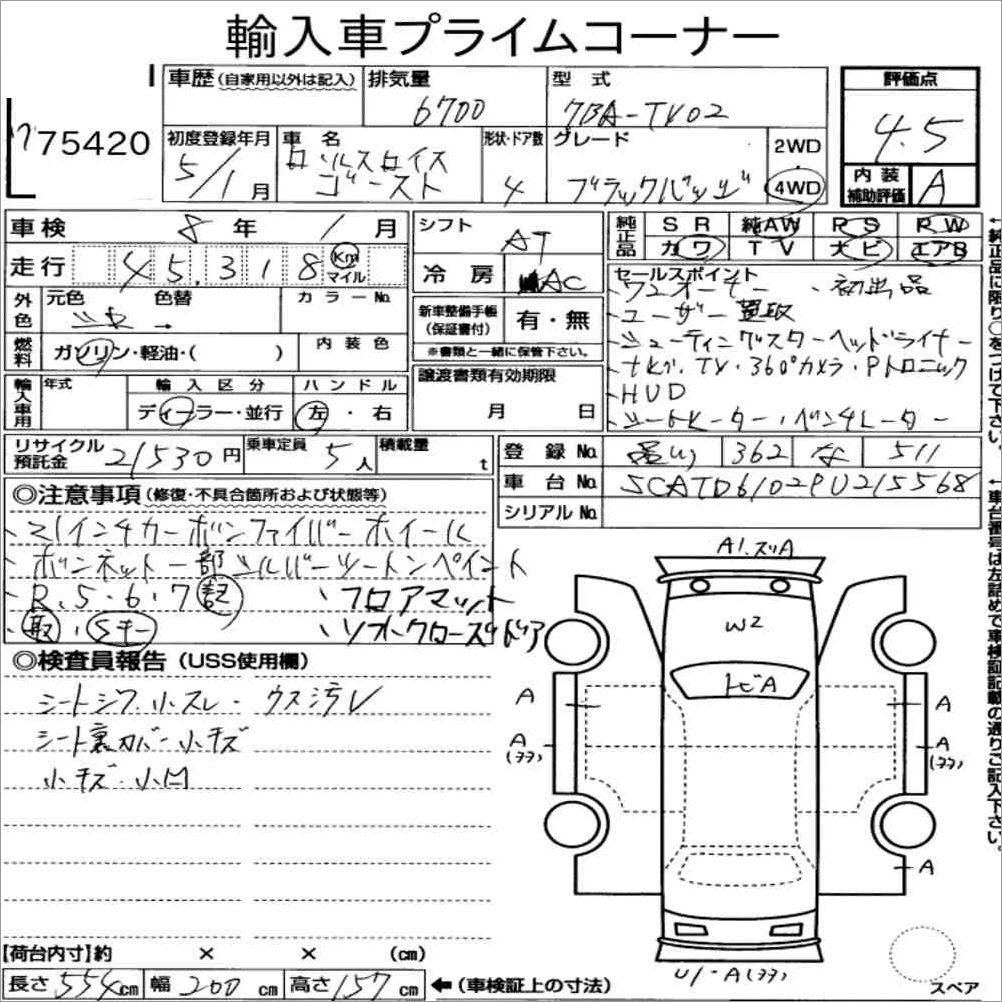 輸入車プライムコーナー
75420
車歴(自家用以外は記入)
排気量
6700
型式
7BA-TV02
評価点
4.5
初度登録年月
5/1月
車名
ロールスロイス
ゴースト
形状・ドア数
4
グレード
ブラックバッジ
2WD
4WD
内装
補助評価
A
車検 8年 1月
シフト
AT
純正品
SR 純AW RS RW
カワ TV 大ビ エアB
走行 45,318 Km
マイル
冷房 AC
外色
元色
色替
カラーNo.
新車整備手帳
(保証書付)
有・無
※書類と一緒に保管下さい。
燃料
ガソリン・軽油・( )
内装色
セールスポイント
ワンオーナー、初出品
ユーザー買取
シューティングスターヘッドライナー
ナビ・TV・360°カメラ・Pトロニック
HUD
シートヒーター・ベンチレーター
輸入車用
年式
輸入区分
ディーラー・並行
ハンドル
左・右
譲渡書類有効期限
月 日
リサイクル
預託金
21530円
乗車定員
5人
積載量
t
登録No.
362
511
車台No.
SCATD6102PU215568
シリアルNo.
◎注意事項(修復・不具合箇所および状態等)
21インチカーボンファイバーホイール
ボンネット一部シルバーツートンペイント
R.5・6・7記
、フロアマット
取・Sキー
、ソフトクローズドドア
◎検査員報告(USS使用欄)
シートシワ・小スレ・ウス汚レ
シート裏カバー小キズ
小キズ・小凹
A1.スリA
W2
トビA
A
A
A
(ヨヨ)
A
(ヨヨ)
A
U1・A(ヨヨ)
スペア
【荷台内寸】約 × × (cm)
長さ554cm 幅200cm 高さ157cm ←(車検証上の寸法)
←純正品に限り○をつけて下さい。
←車台番号は左詰めで車検証記載の通りご記入下さい。